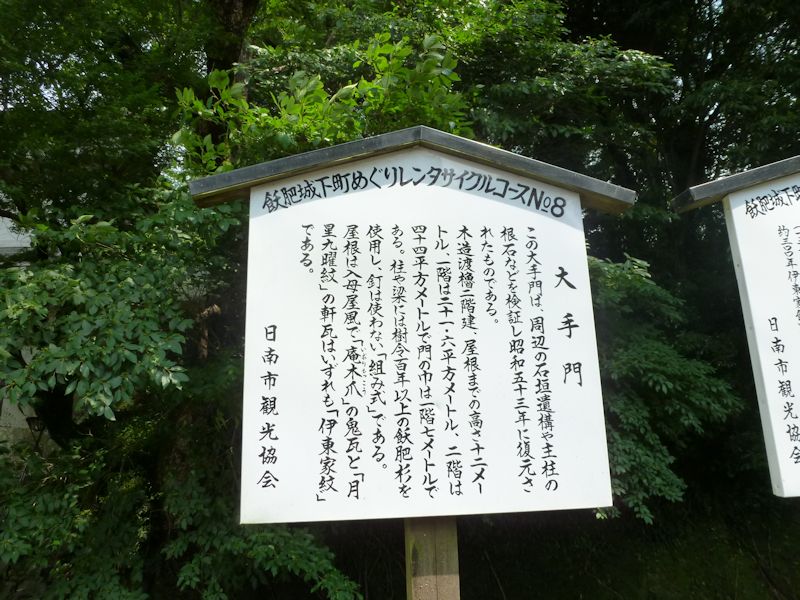 飫肥城下町めぐりレンタサイクルコースNo8
大手門
この大手門は、周辺の石垣遺構や主柱の
根石などを検証し昭和五十三年に復元さ
れたものである。
木造渡櫓二階建、屋根までの高さ十二メー
トル、一階は二十一・六平方メートル、二階は
四十四平方メートルで門の巾は一階七メートルで
ある。柱や梁には樹令百年以上の飫肥杉を
使用し、釘は使わない「組み式」である。
屋根は入母屋風で「庵木爪」の鬼瓦と「月
星九曜紋」の軒瓦はいずれも「伊東家紋」
である。
日南市観光協会
飫肥城下
約三〇〇年伊東家
日南市観光協会